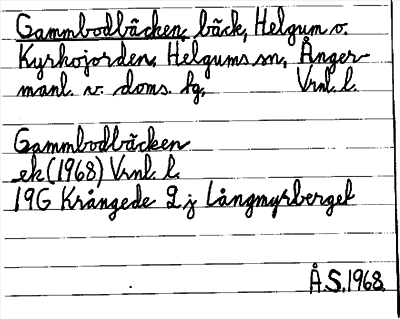 Gammbodbäcken, bäck, Helgum o.
Kyrkojorden, Helgums sn, Ånger-
manl. v. doms. fg, Vrnl. l.
Gammbodbäcken
ek (1968) Vrnl. l.
19G Krångede 2 j Långmyrberget
Å.S. 1968.